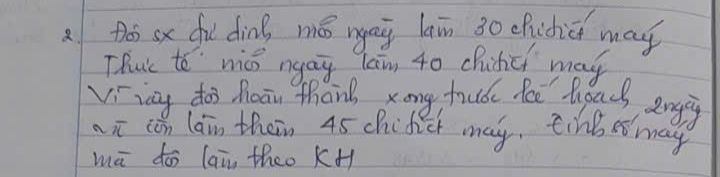 2. Đội sx dự định mỗi ngày làm 30 chi tiết máy
Thực tế mỗi ngày làm 40 chi tiết máy
Vì vậy đội hoàn thành xong trước kế hoạch 2 ngày
và còn làm thêm 45 chi tiết máy. Tính số máy
mà đội làm theo KH